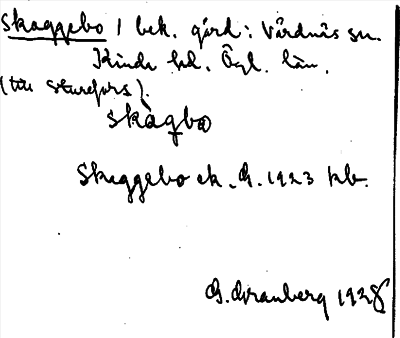 Skaggebo 1 bek. gård: Vårdnäs sn.
Kinda hd. Ögl. län.
(till Sturefors).
skàgbo
Skeggebo ek. G. 1923 kb.
G. Granberg 1928